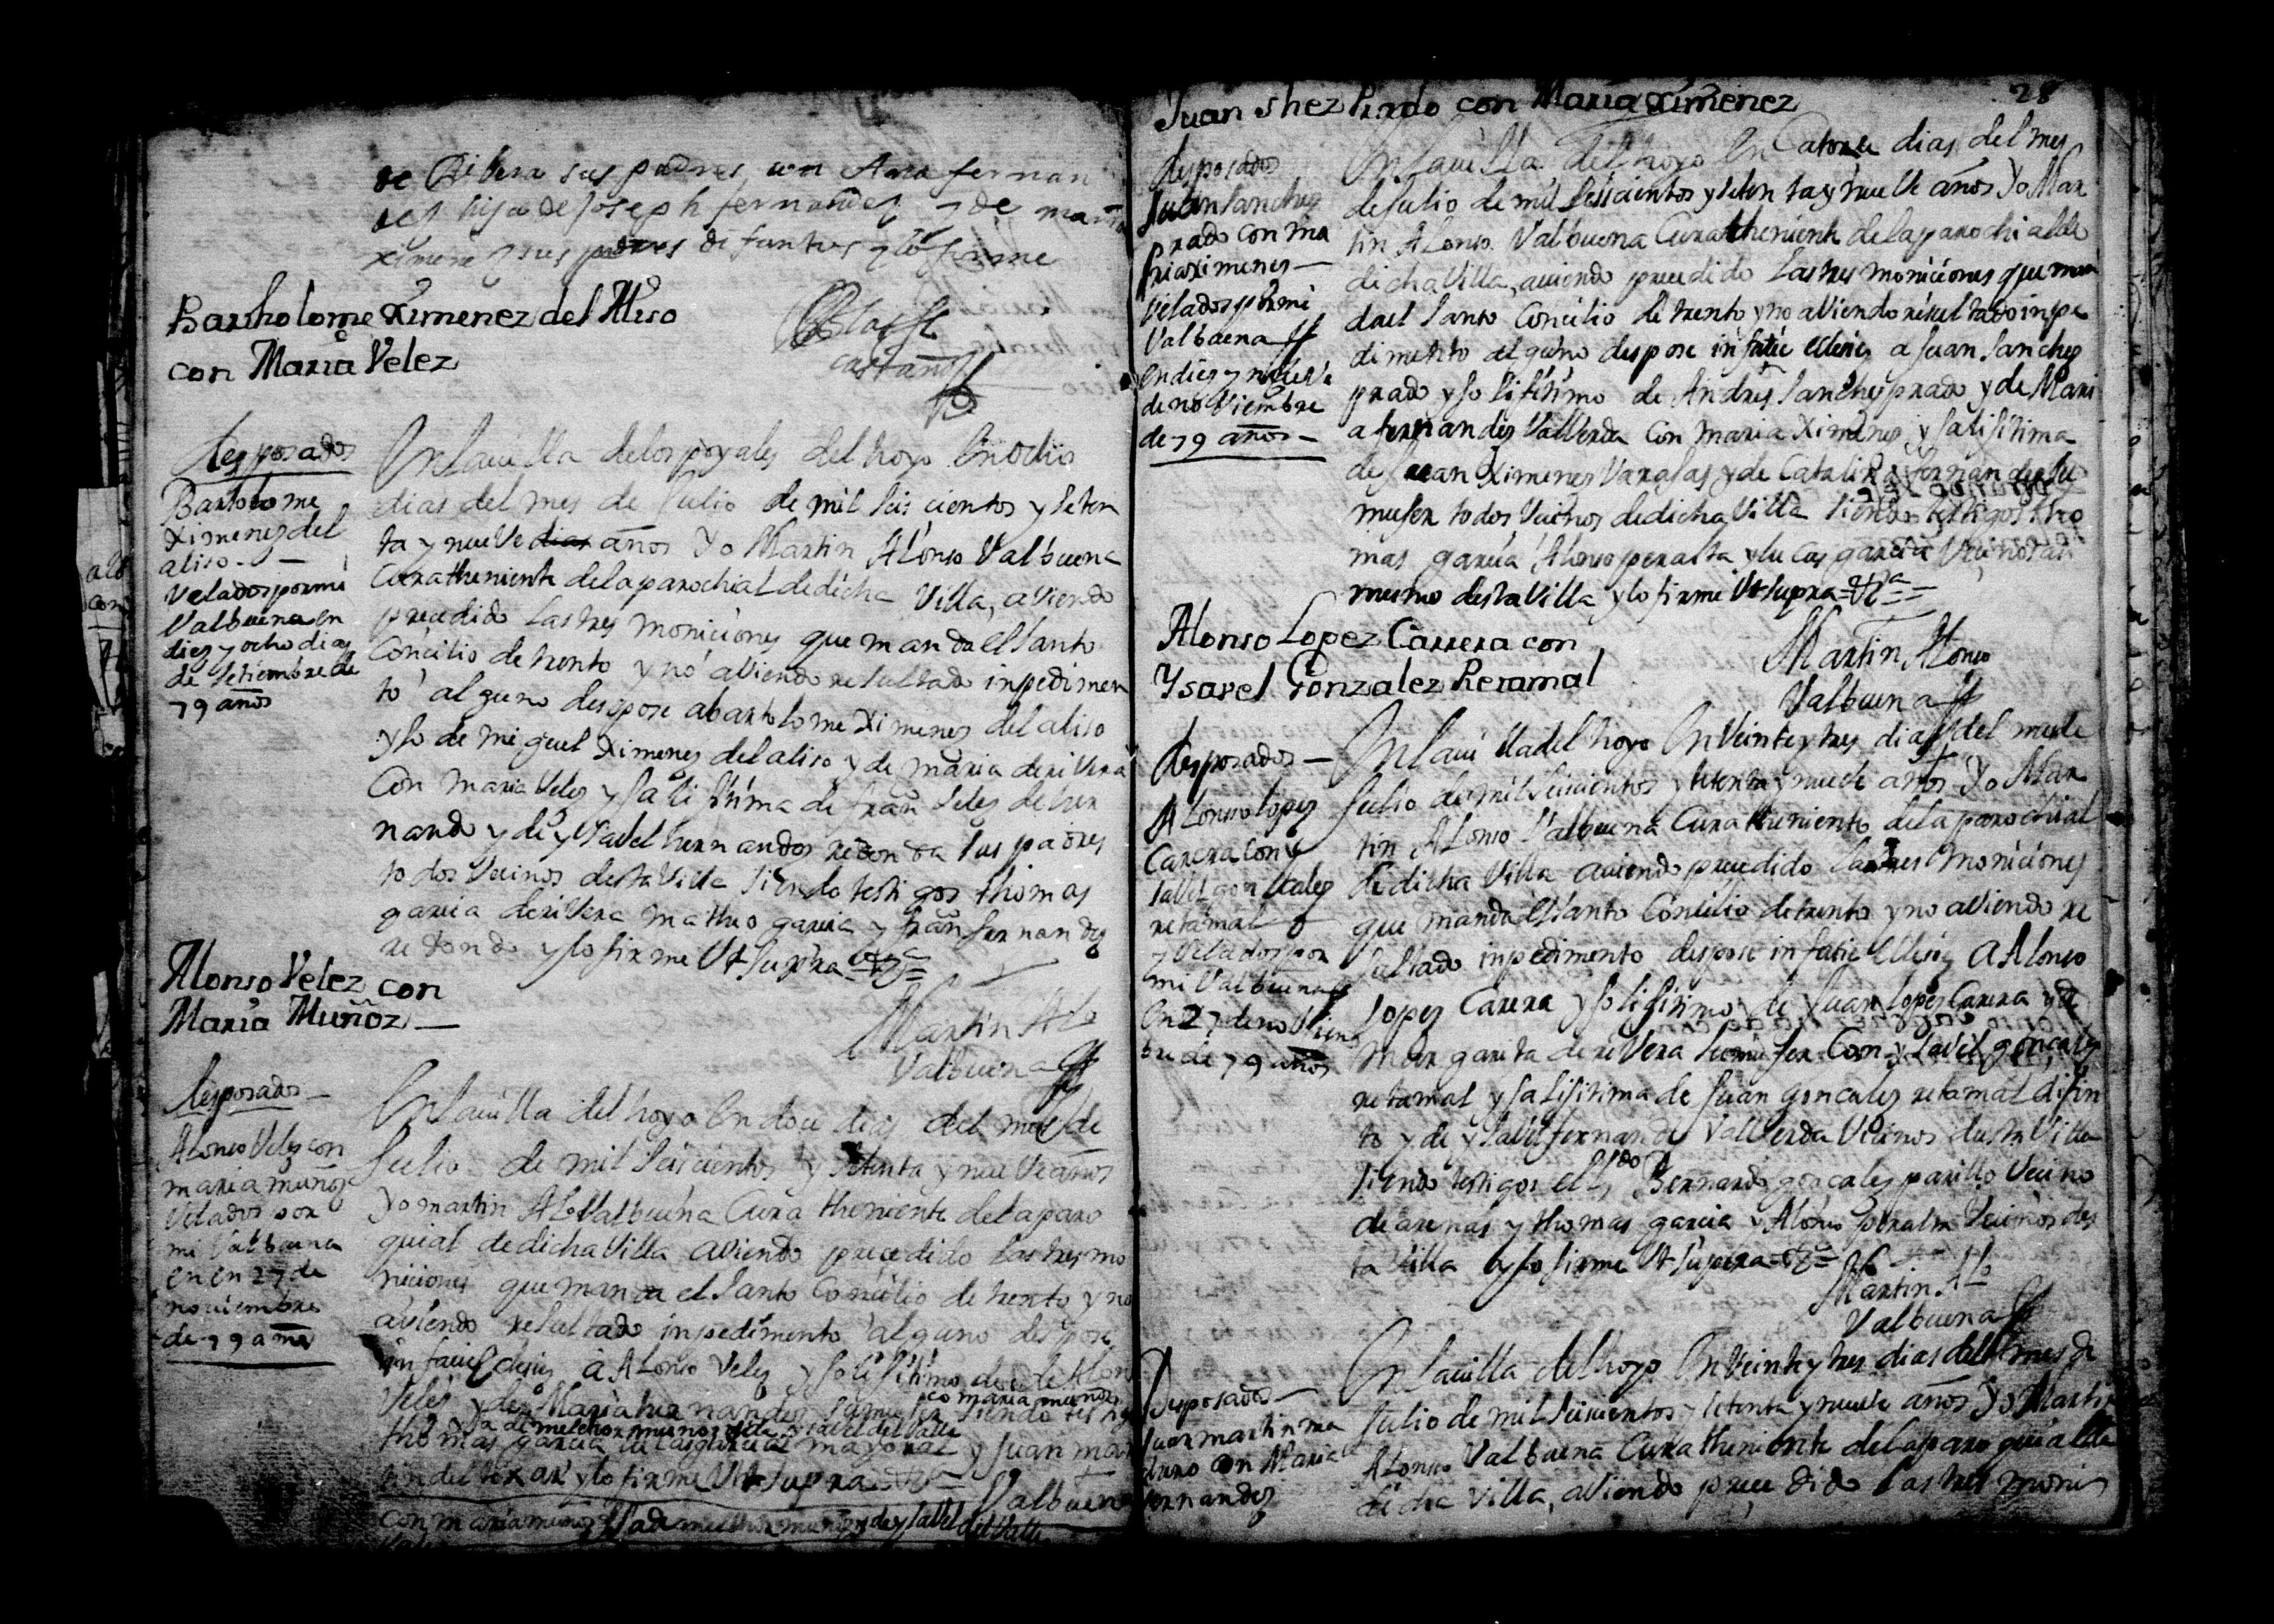 de Ribera sus padres, con Ana fernan
des hija de Joseph fernandez y de maria
ximenez sus padres difuntos y lo firme
Blas fr
castaño
Bartholome Ximenez del Aliso
con Maria Velez
desposados
Bartolome
Ximenez del
aliso -
Velados por mi
Valbuena en
dies y ocho dias
de setiembre de
79 años
En la uilla de los poyales del hoyo En ocho
dias del mes de Julio de mil seis cientos y seten
ta y nueve dias años Yo Martin Alonso Valbuena
Cura theniente de la parochial de dicha Villa, aviendo
precedido las tres moniciones que manda el santo
Concilio de trento y no aviendo resultado inpedimen
to alguno despose a bartolome Ximenes del aliso
yjo de miguel Ximenes del aliso y de maria de rivera
Con maria Veles yja lijitima de fran Veles de her
nando y de ysavel hernandos redonda sus padres
todos Vecinos desta Villa siendo testigos thomas
garcia de rivera matheo garcia y fran fernandez
redondo y lo firme Vt supra
Martin Alo
Valbuena
Alonso Velez con
Maria Muñoz -
desposados -
Alonso Velez con
maria muñoz
Velados por
mi Valbuena
en en 27 de
noviembre
de 79 años
En la uilla del hoyo En doce dias del mes de
Julio de mil seiscientos y setenta y nueve años
Yo martin Alo Valbuena Cura theniente de la paro
quial de dicha Villa aviendo precedido las tres mo
niciones que manda el santo Concilio de trento y no
aviendo resultado inpedimento alguno despose
in facie eclesie a Alonso Velez yjo lijitimo de Alonso
Veles y de Maria hernandes su mujer siendo testigos
co maria muñoz
ya de melchor munoz y de ysavel del Valle
thomas garcia lucas garcia mayoral y Juan mar
tin del tixar y lo firme Vt supra
Valbuena
con maria munoz yja de melchor munoz y de ysavel del Valle
28
Juan shez Prado con Maria Ximenez
desposados
Juan Sanchez
prado con Ma
ria Ximenes -
Velados por mi
Valbuena
En dies y nueve
de noviembre
de 79 años -
En la uilla del hoyo En Catorce dias del mes
de Julio de mil seiscientos y setenta y nueve años Yo Mar
tin Alonso Valbuena Cura theniente de la parochial de
dicha Villa, aviendo precedido las tres moniciones que man
da el santo Concilio de trento y no aviendo resultado inpe
dimento alguno despose in fatie eclesie a Juan Sanchez
prado yjo lijitimo de Andres Sanchez prado y de Mari
a fernandes Valverda Con maria Ximenes yja lijitima
de Juan Ximenes Varajas y de Catalina fernandez su
mujer todos Vecinos de dicha Villa siendo testigos tho
mas garcia Alonso peralta y lucas garcia Vecinos asi
mismo desta Villa y lo firme Vt supra
Martin Alonso
Valbuena
Alonso Lopez Carrera con
Ysavel Gonzalez Retamal
desposados -
Alonso lopes
Carera con y
savel gonzales
retamal
y Velados por
mi Valbuena
En 27 de noviem
bre de 79 años
En la uilla del hoyo En Veinte y tres dias del mes de
Julio de mil seiscientos y setenta y nueve años Yo Mar
tin Alonso Valbuena Cura theniente de la parochial
de dicha Villa aviendo precedido las tres moniciones
que manda el santo Concilio de trento y no aviendo re
sultado inpedimento despose in fatie eclesie a Alonso
lopez Carera yjo lijitimo de Juan lopez Carera y de
Margarita de rivera su mujer Con ysavel gonçales
retamal yja lijitima de Juan gonçales retamal difun
to y de ysavel fernandes Valverda Vecinos desta Villa
siendo testigos el Ldo Bernardo gonçales parillo Vecino
de arenas y thomas garcia y Alonso peralta Vecinos des
ta Villa y lo firme Vt supra
Martin Alo
Valbuena
Desposados -
Juan martin ma
duro con Maria
fernandez
En la uilla del hoyo En Veinte y tres dias del mes de
Julio de mil seiscientos y setenta y nueve años Yo Martin
Alonso Valbuena Cura theniente de la paroquial de
dicha Villa, aviendo precedido las tres monis